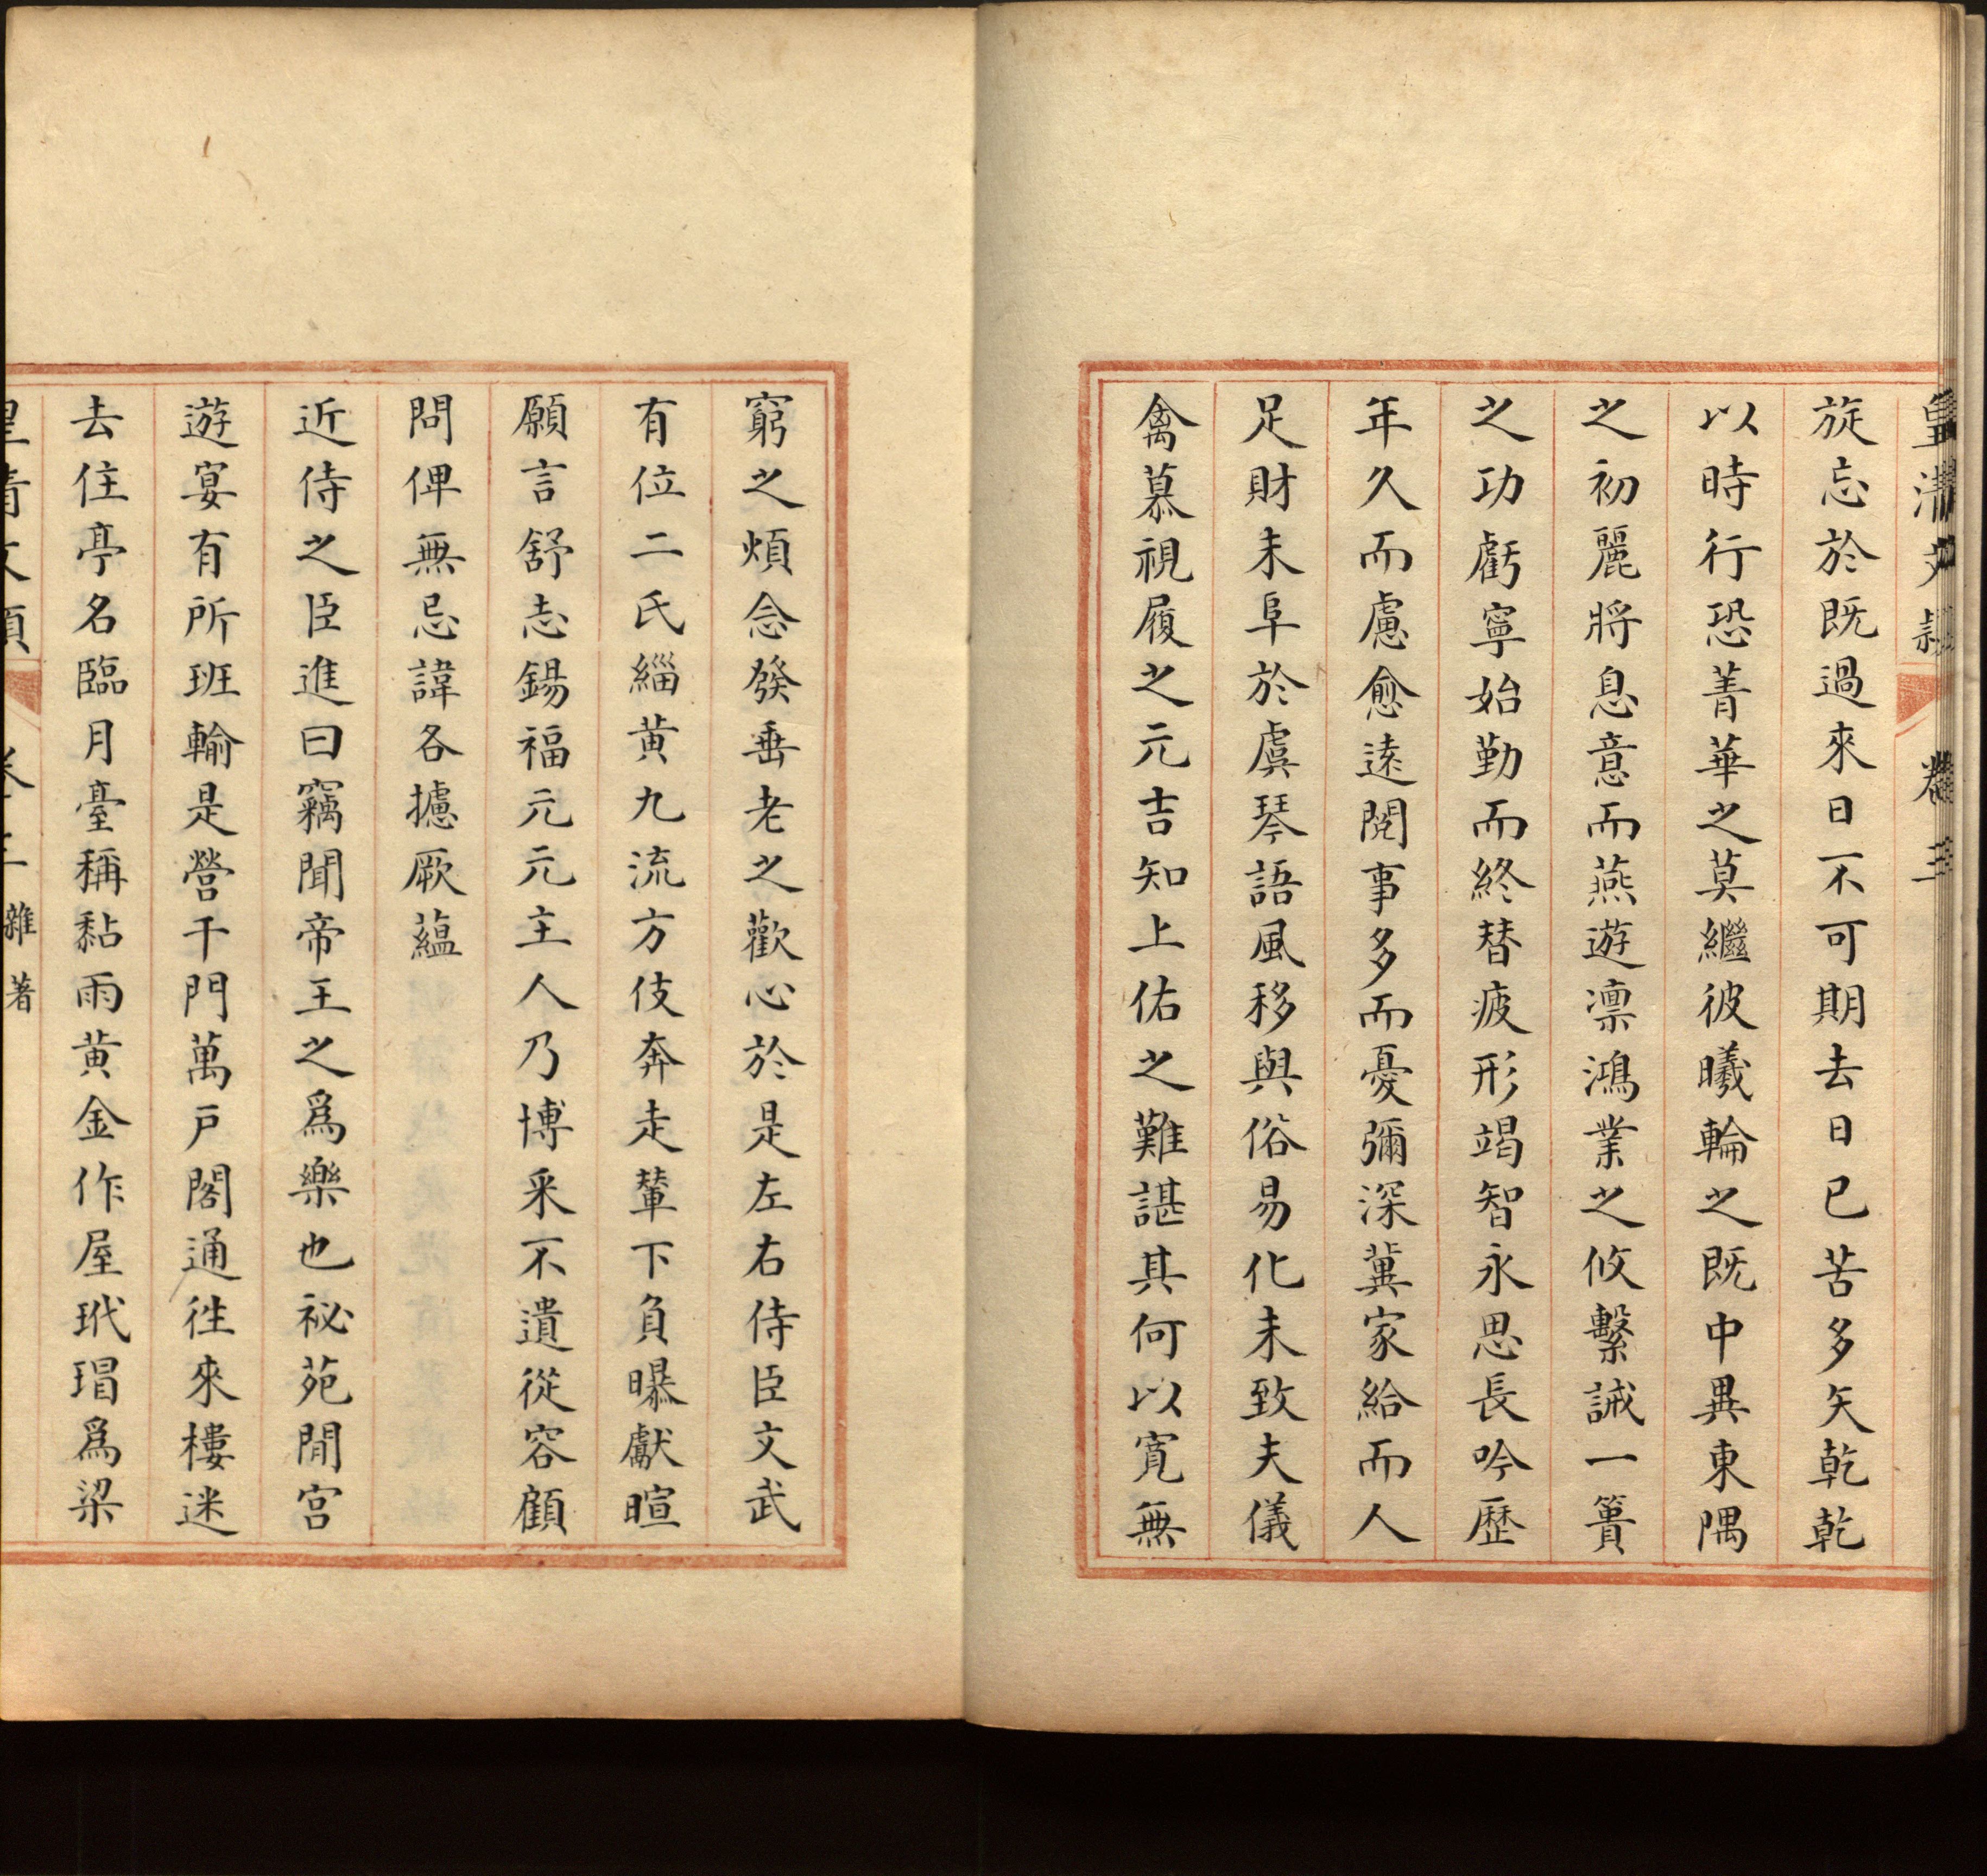 皇清文穎 卷三
旋忘於既過來日不可期去日已苦多矢乾乾
以時行恐菁華之莫繼彼曦輪之既中異東隅
之初麗將息意而燕遊凛鴻業之攸繫誡一簣
之功虧寧始勤而終替疲形竭智永思長吟歷
年久而慮愈遠閱事多而憂彌深冀家給而人
足財未阜於虞琴語風移與俗易化未致夫儀
禽慕視履之元吉知上佑之難諶其何以寬無
窮之煩念發垂老之歡心於是左右侍臣文武
有位二氏緇黄九流方伎奔走輦下負曝獻暄
願言舒志錫福元元主人乃博采不遺從容顧
問俾無忌諱各攄厥蘊
近侍之臣進曰竊聞帝王之爲樂也祕苑閒宫
遊宴有所班輸是營千門萬戶閣通徃來樓迷
去住亭名臨月臺稱黏雨黄金作屋玳瑁爲梁
皇清文穎 卷 雜著